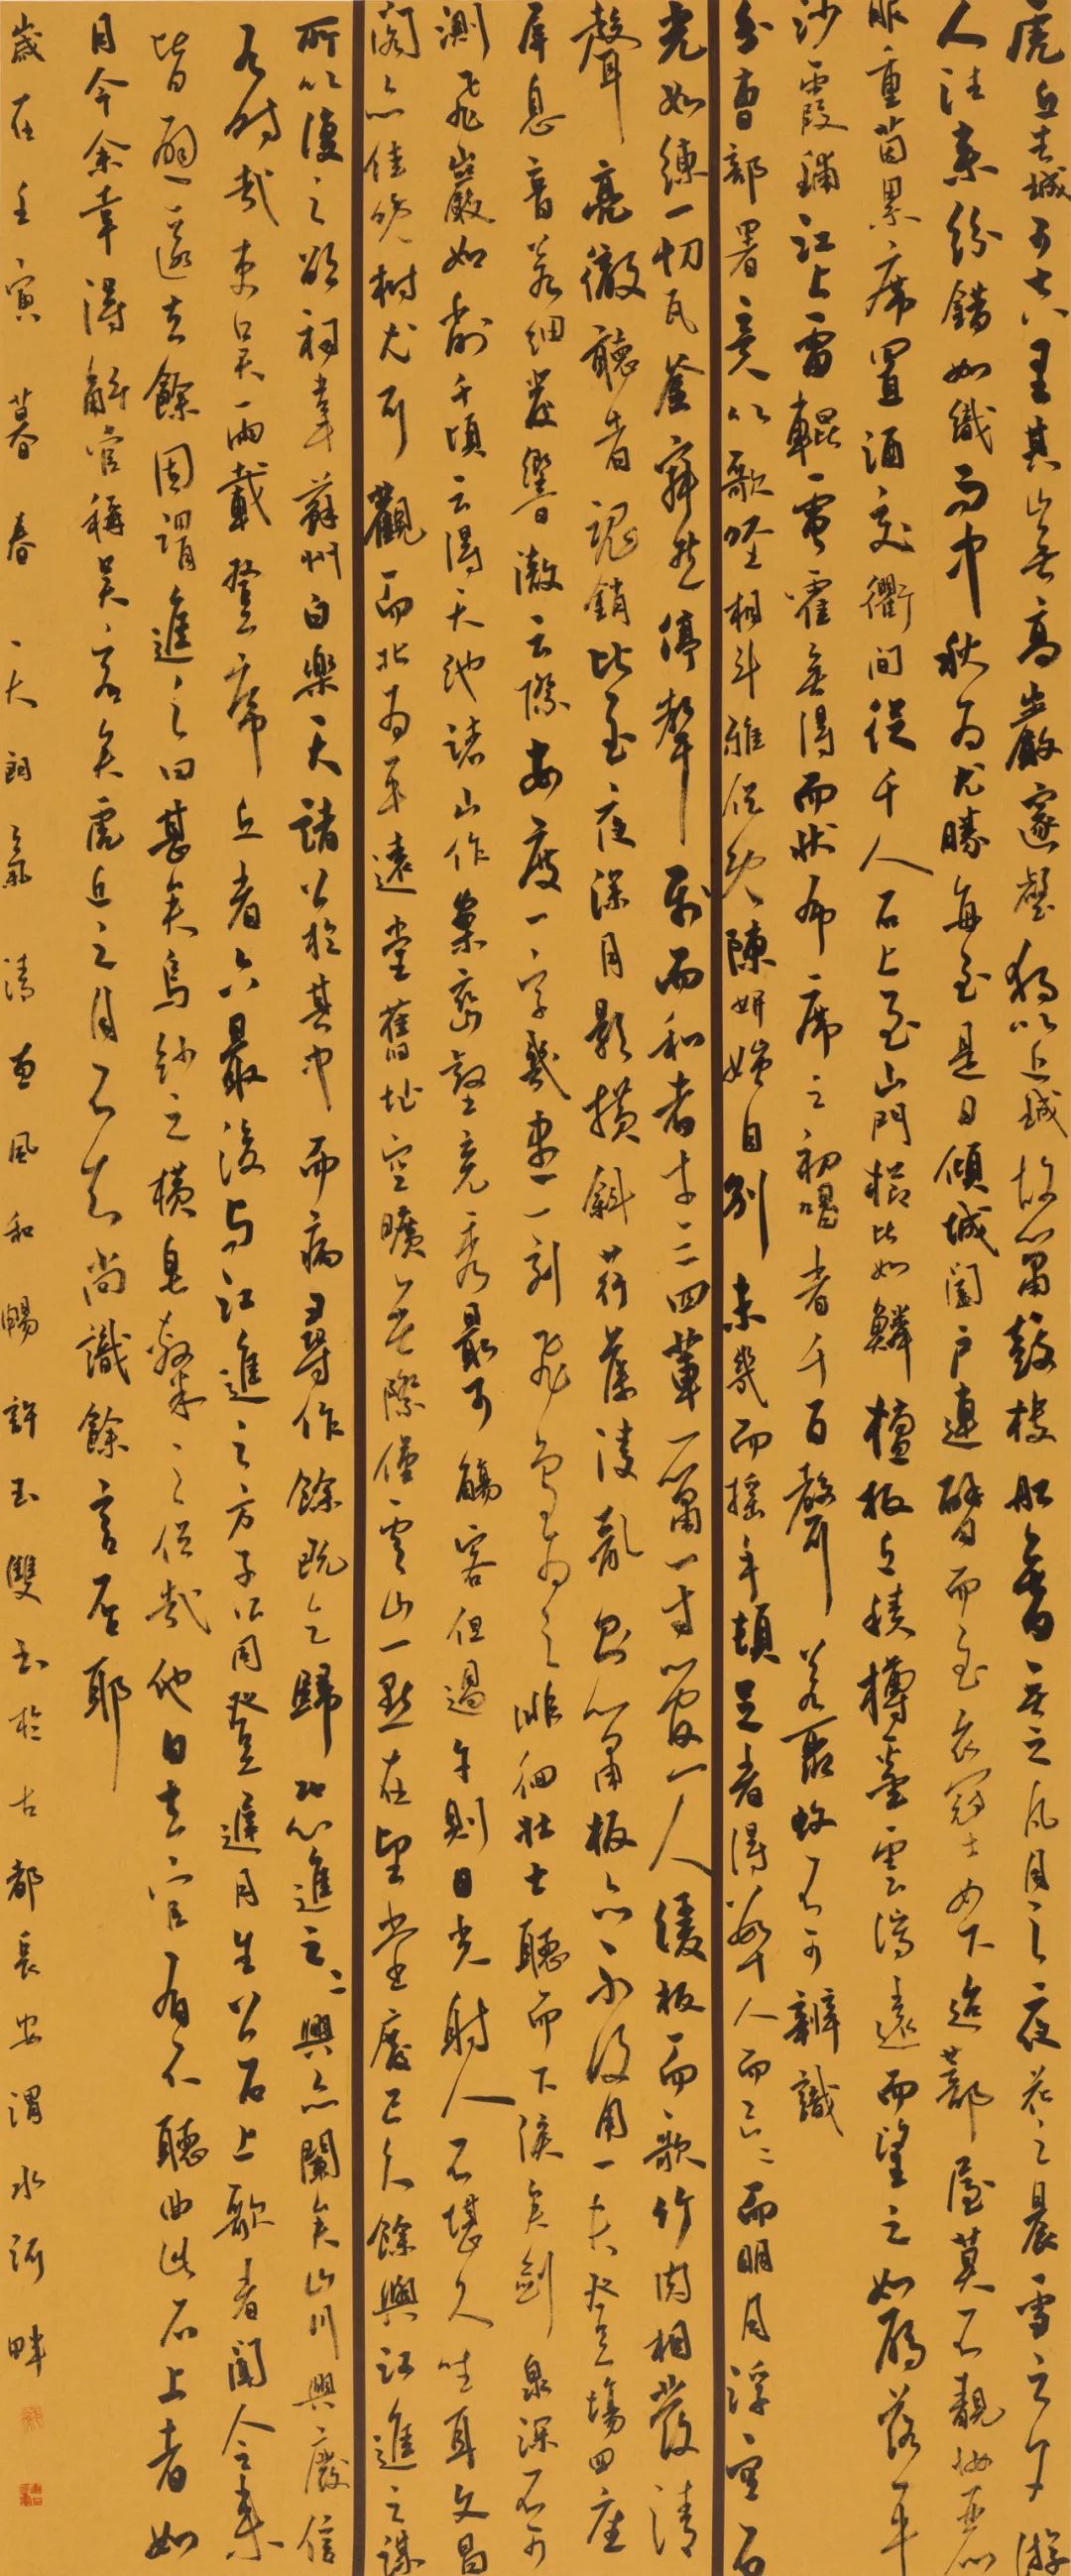 虎丘去城可七八里其山無高巖邃壑獨以近城故簫鼓樓船無日無之凡月之夜花之晨雪之夕游
人往來紛錯如織而中秋為尤勝每至是日傾城闔戶連臂而至衣冠士女下迨蔀屋莫不靚妝麗
服重茵累席置酒交衢間從千人石上至山門櫛比如鱗檀板丘積樽罍雲瀉遠而望之如雁落平
沙霞鋪江上雷輥電霍無得而狀布席之初唱者千百聲若聚蚊不可辨識
分曹部署競以歌喉相斗雅俗既陳妍媸自別未幾而搖手頓足者得數十人而已已而明月浮空石
光如練一切瓦釜寂然停聲屬而和者才三四輩一簫一寸管一人緩板而歌竹肉相發清
聲亮徹聽者魂銷比至夜深月影橫斜荇藻凌亂則簫板亦不復用一夫登場四座
屏息音若細髮響徹云際每度一字幾盡一刻飛鳥為之徘徊壯士聽而下淚矣劍泉深不可
測飛巖如削千頃云得天池諸山作案巒壑競秀最可觴客但過午則日光射人不堪久坐耳文昌
閣亦佳晚樹尤可觀而北為平遠堂舊址空曠無際僅虞山一點在望堂廢已久餘與江進之謀
所以復之欲祠韋蘇州白樂天諸公於其中而病尋作餘既乞歸恐進之之興亦闌矣山川興廢信
有時哉吏吳兩載登虎丘者六最後與江進之方子公同登遲月生公石上歌者聞令來
皆避匿去餘因謂進之曰甚矣烏紗之橫皂隸之俗哉他日去官有不聽曲此石上者如
月今余幸得解官稱吳客矣虎丘之月不知尚識餘言否耶
歲在壬寅暮春天朗氣清惠風和暢許玉雙書於古都長安渭水河畔